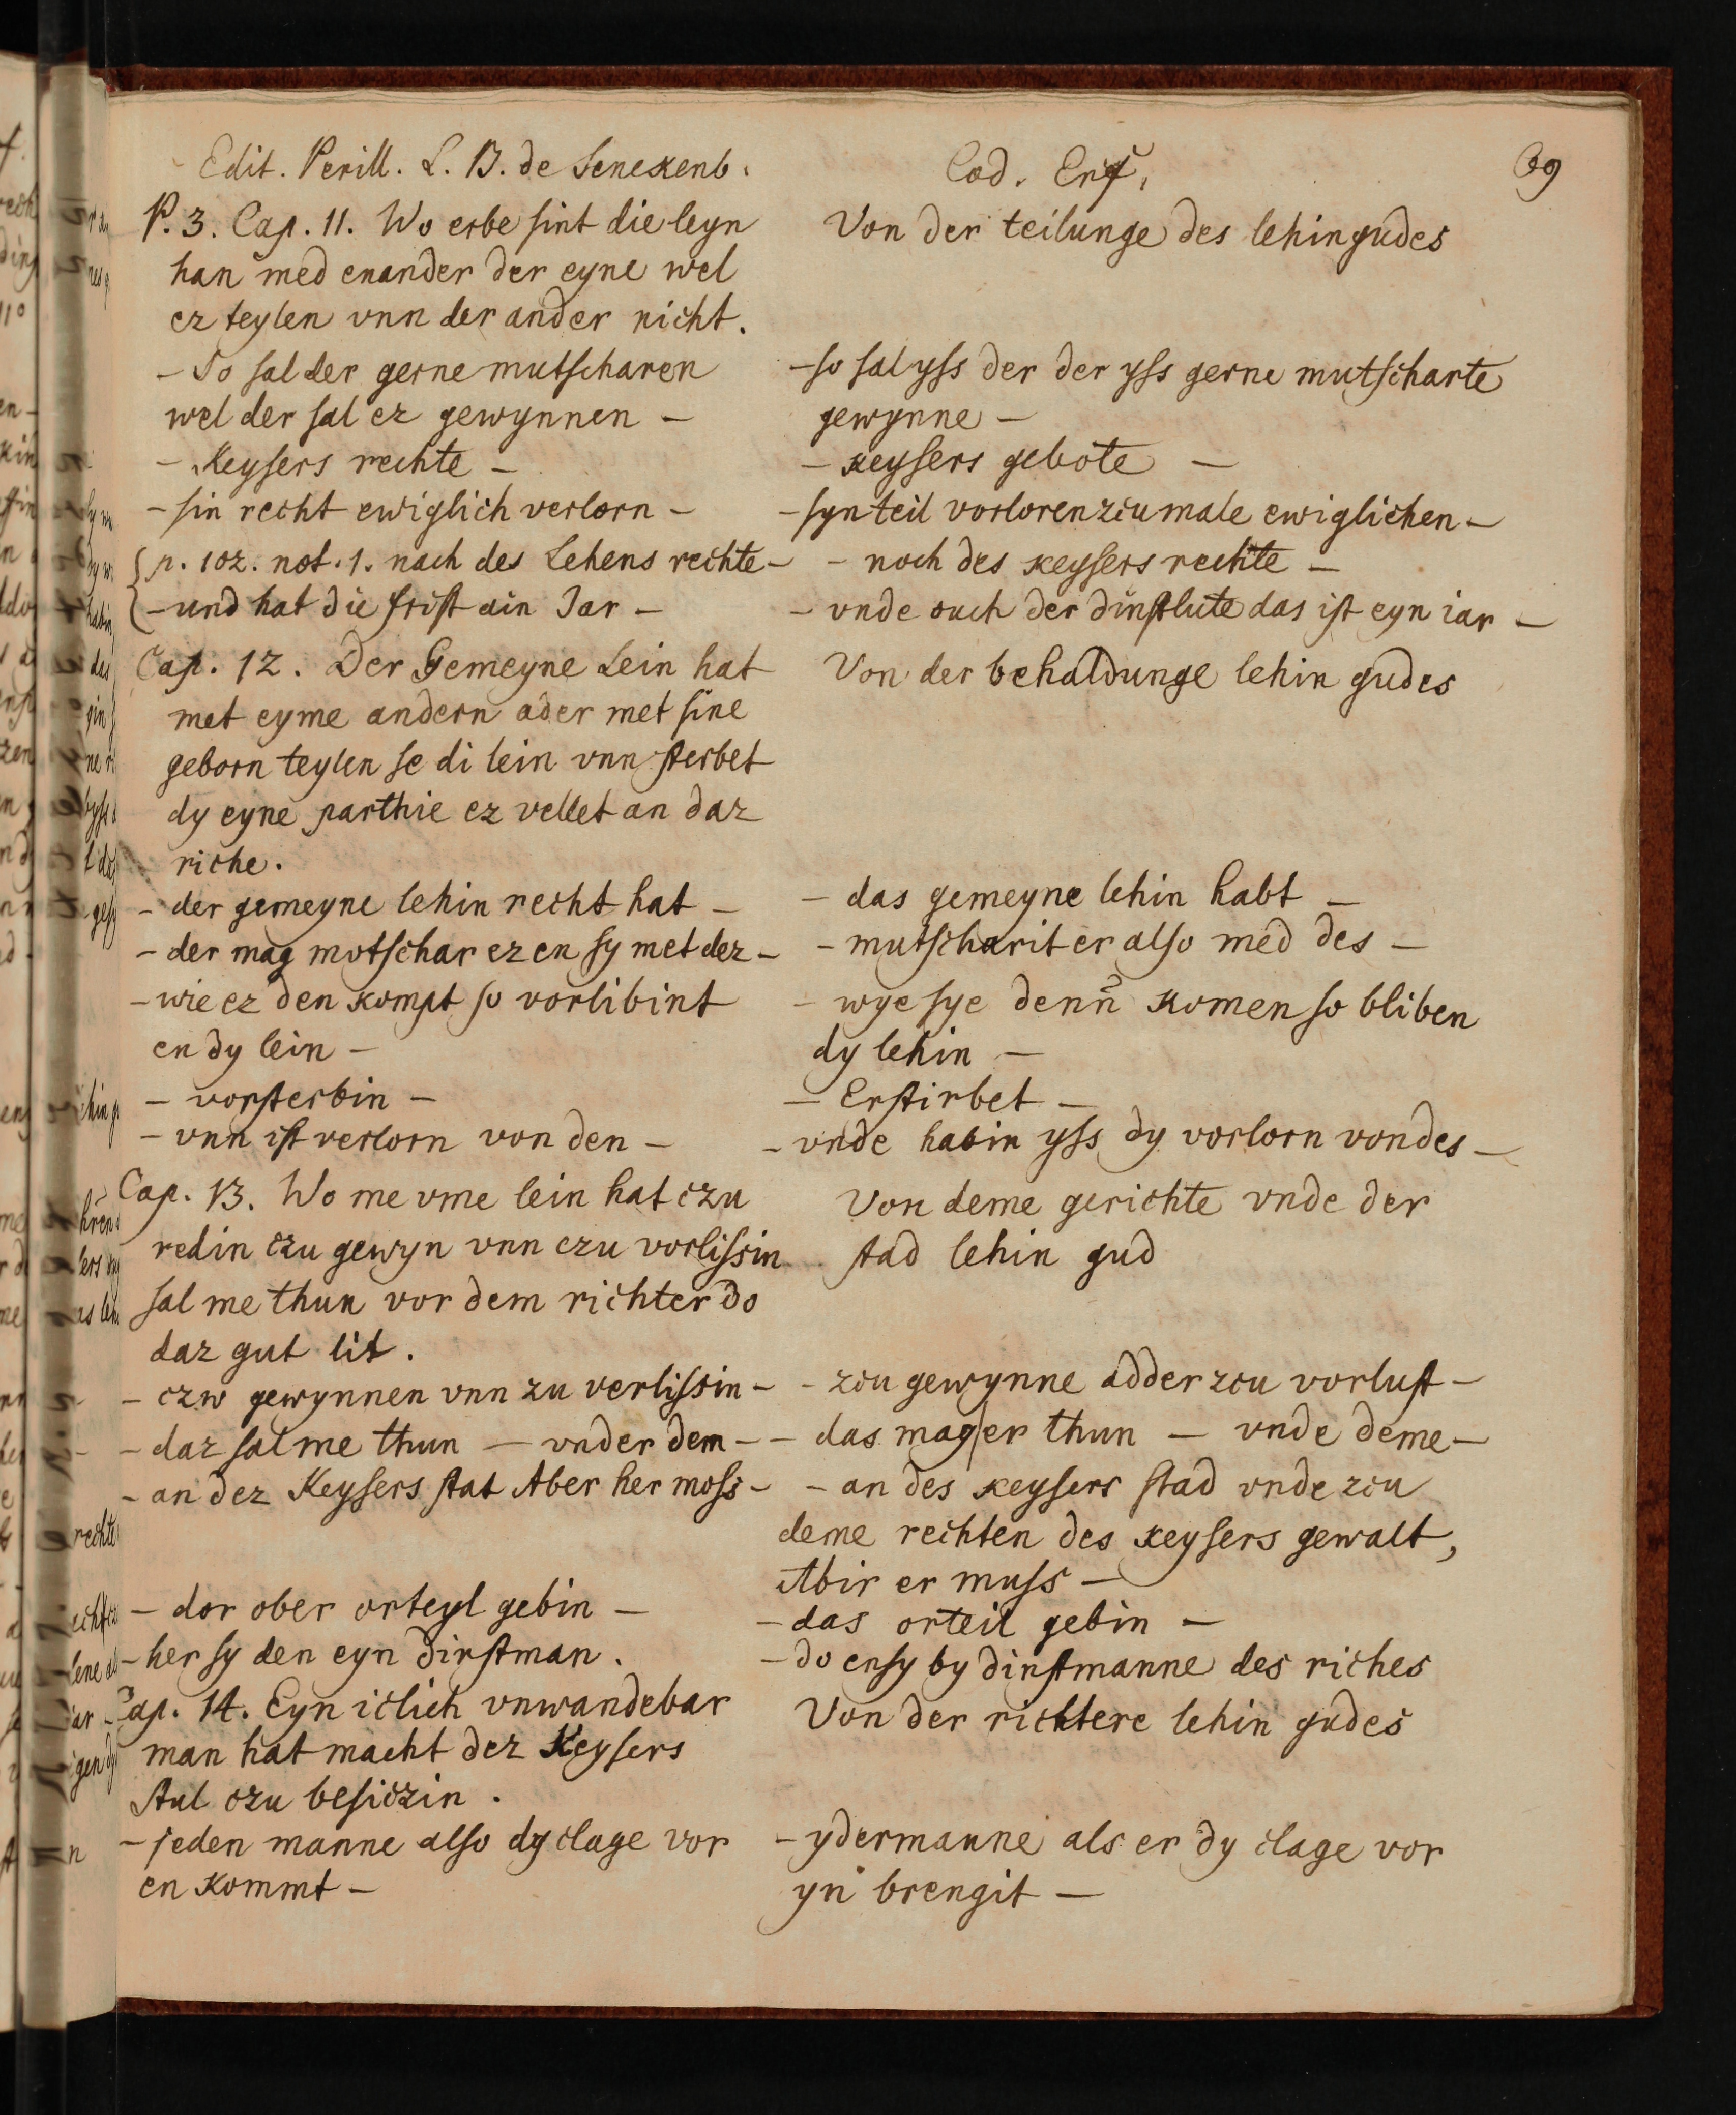 Edit. Perill. L. B. de Senckenb.
P. 3. Cap. 11. Wo erbe sint die leyn
han med enander der eyne wel
ez teylen vnn der ander nicht.
- So sal der gerne mutscharen
wel der sal ez gewynnen -
- Keysers rechte -
- sin recht ewiglich verlorn -
p. 102. not. 1. nach des Lehens rechte -
- und hat die frist ain Jar -
Cap. 12. Der Gemeyne Lein hat
met eyme andern ader met sine
geborn teylen se di lein vnn sterbet
dy eyne parthie ez vellet an daz
riche.
- der gemeyne lehin recht hat -
- der mag motschar ez en sy met dez -
- wie ez den kompt so vorlibint
en dy lein -
- vorsterbin -
- vnn ist verlorn von den -
Cap. 13. Wo me vme lein hat czu
redin czu gewyn vnn czu vorlissin
sal me thun vor dem richter do
daz gut lit.
- czw gewynnen vnn zu verlissin -
- daz sal me thun - vnder dem -
- an dez Keysers stat Aber her moss -
- dor ober orteyl gebin -
- her sy den eyn dinstman.
Cap. 14. Eyn iclich vnwandebar
man hat macht dez Keysers
Stul czu besiczin.
- jeden manne also dy clage vor
en kommt -
Cod. Erf.
39
Von der teilunge des lehingudes
- so sal yss der der yss gerne mutscharte
gewynne -
- keysers gebote -
- syn teil vorloren zcumale ewiglichen -
- noch des keysers rechte -
- vnde ouch der dinstlute das ist eyn iar -
Von der behaldunge lehin gudes
- das gemeyne lehin habt -
- mutscharit er also med des -
- wye sye denn komen so bliben
dy lehin -
- Erstirbet -
- vnde habin yss dy vorlorn von des -
Von deme gerichte vnde der
stad lehin gud
- zcu gewynne adder zcu vorlust -
- das mag er thun - vnde deme -
- an des keysers stad vnde zcu
deme rechten des keysers gewalt,
Abir er muss -
- das orteil gebin -
- do ensy by dinstmanne des riches
Von der richtere lehin gudes
- ydermanne als er dy clage vor
yn brengit -